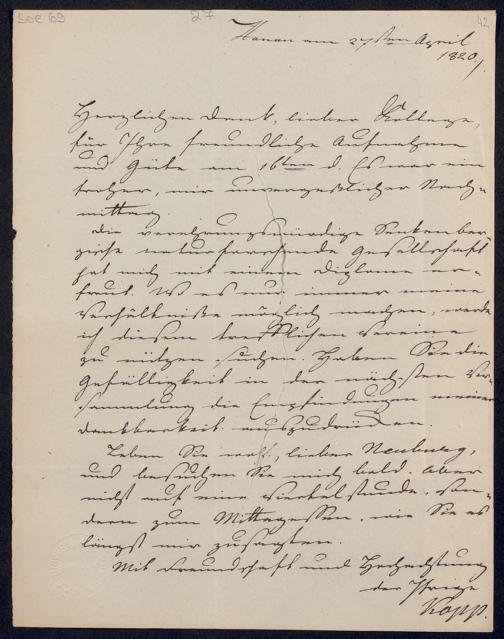 Soe 69
27
42
Hanau am 27sten April
1820./.
Herzlichen Dank, lieber Kollege,
für Ihre freundliche Aufnahme
und Güte am 16ten d. Es war ein
froher, mir unvergeßlicher Nach-
mittag.
Die verehrungswürdige Senkenber
gische naturforschende Gesellschaft
hat mich mit einem Diplome er-
freut. Wo es nur immer meine
Verhältniße möglich machen, werde
ich diesem trefflichen Vereine
zu nützen suchen. Haben Sie die
Gefälligkeit in der nächsten Ver-
sammlung die Empfindungen meiner
Dankbarkeit auszudrücken.
Leben Sie wohl, lieber Neuburg,
und besuchen Sie mich bald. Aber
nicht auf eine Viertelstunde, son-
dern zum Mittagessen, wie Sie es
längst mir zusagten.
Mit Freundschaft und Hochachtung
der Ihrige
Kopp.